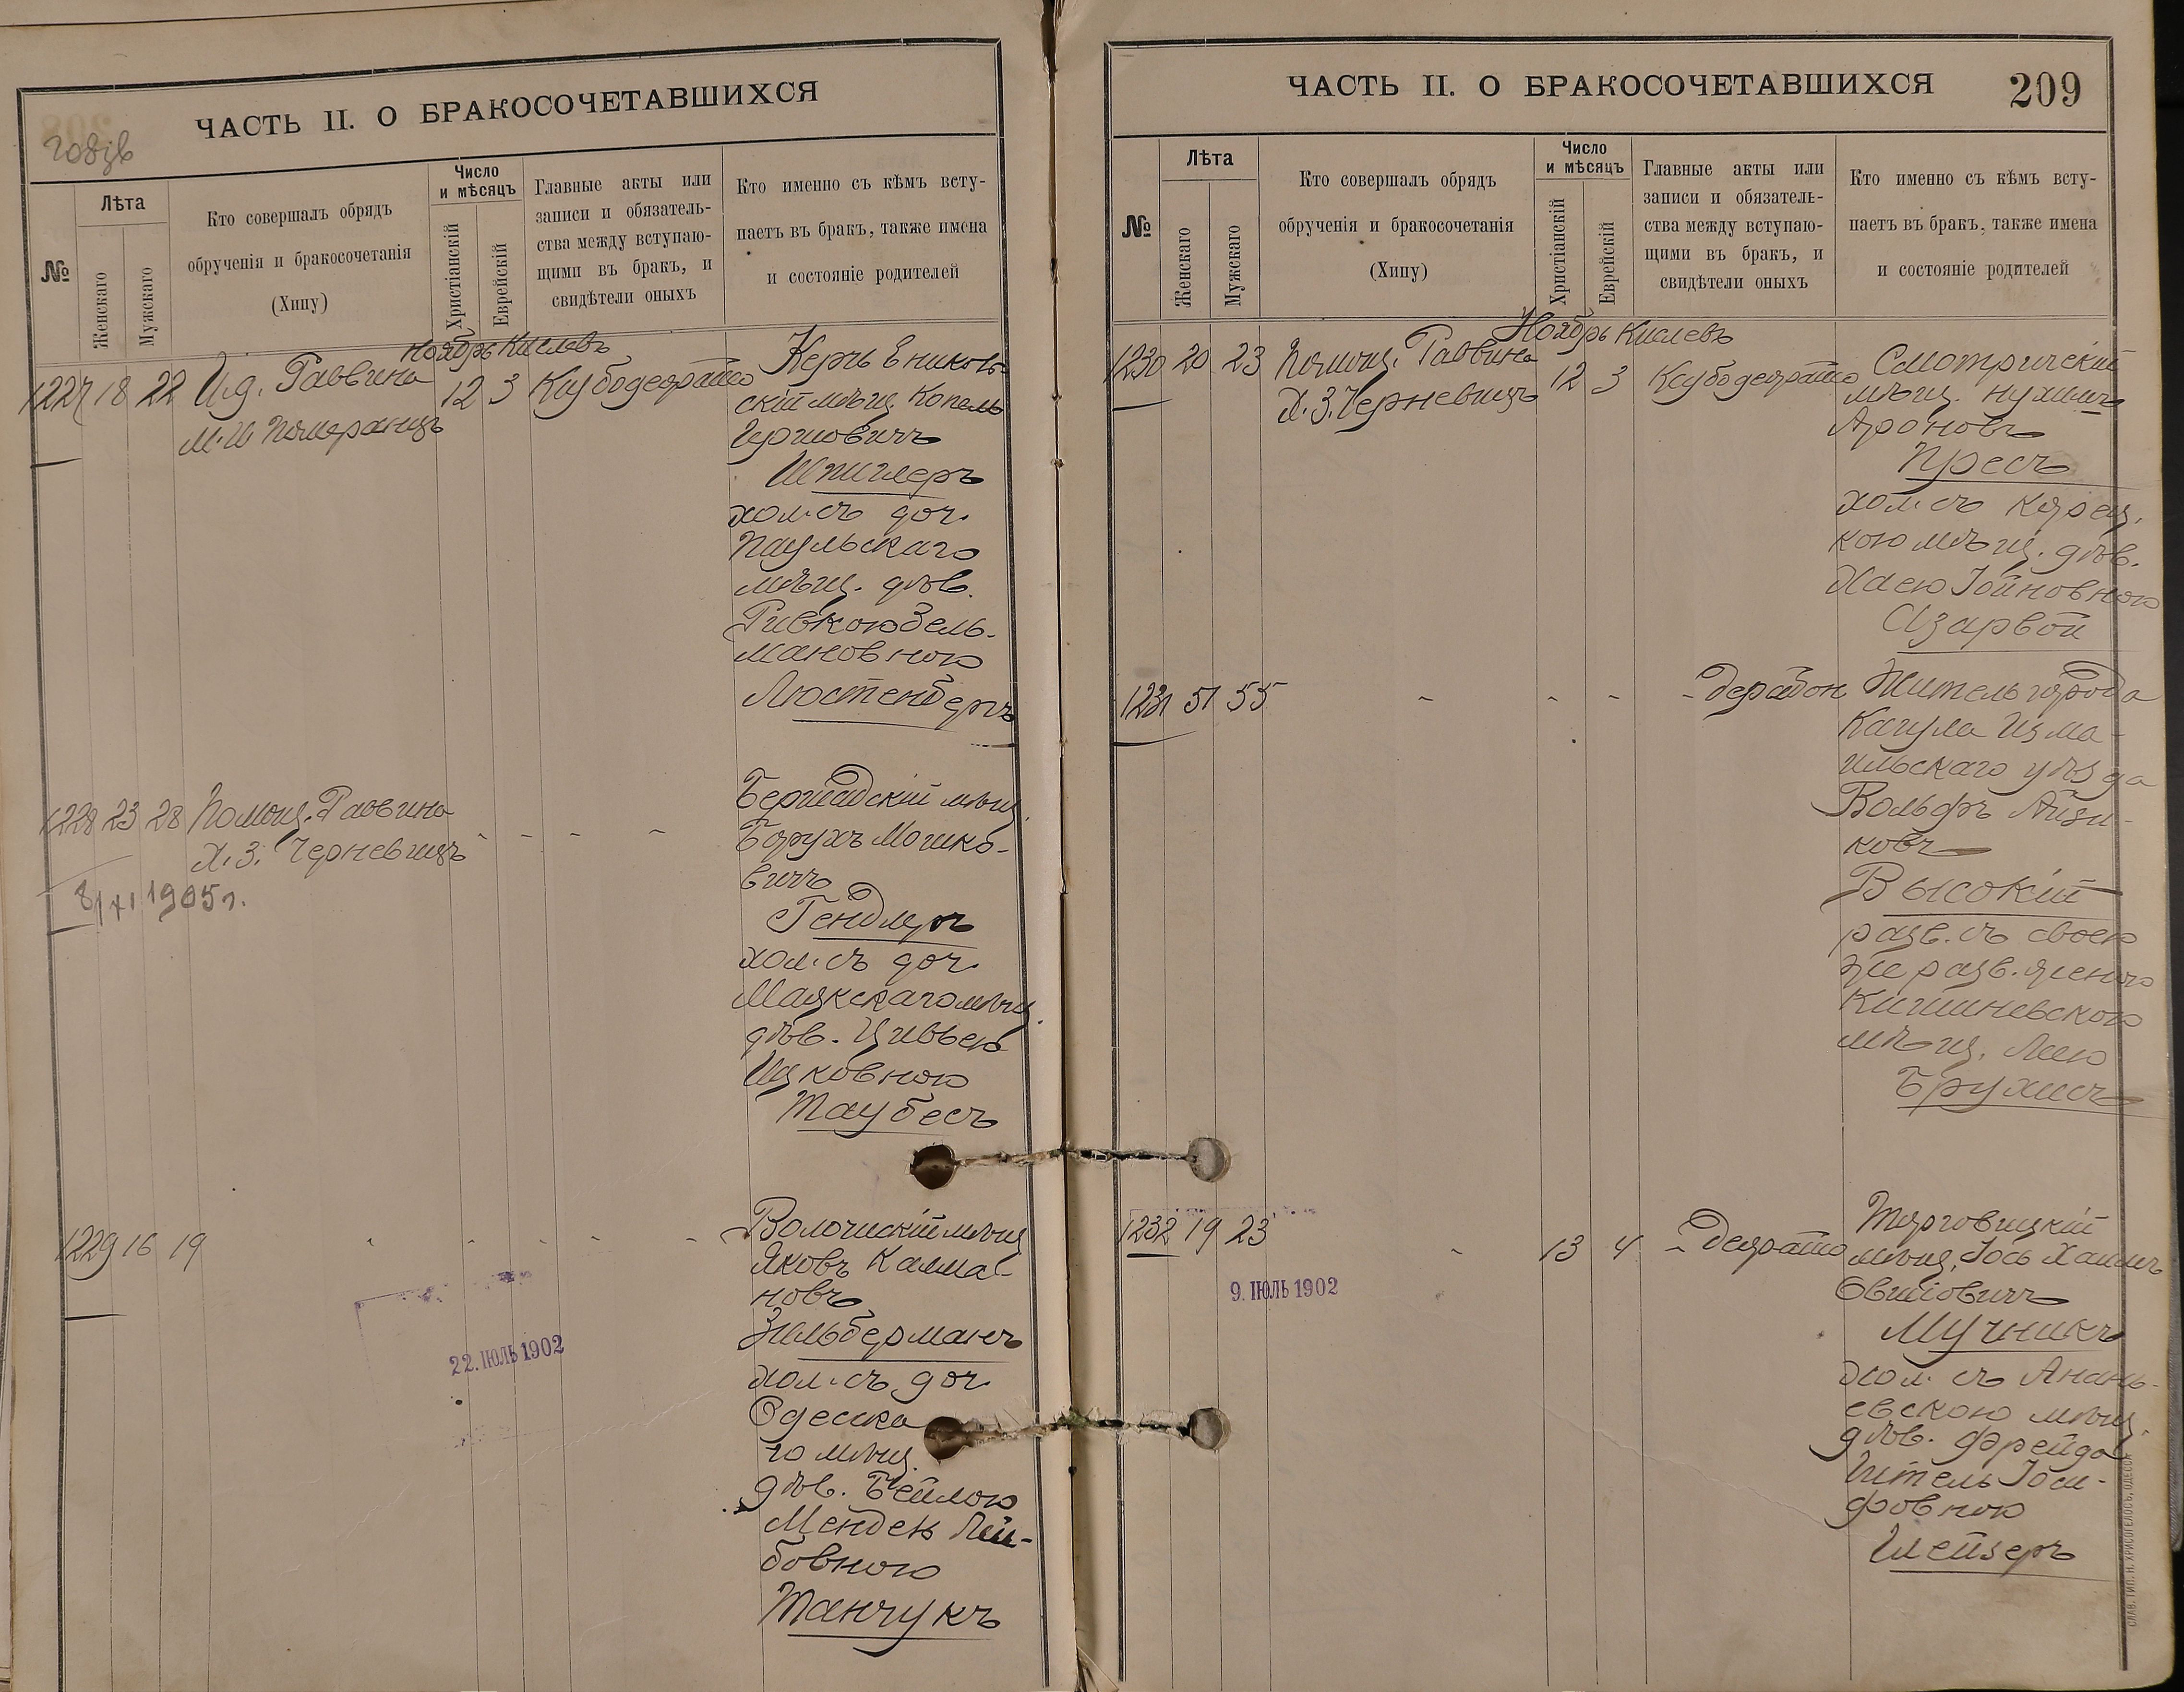 ЧАСТЬ II. О БРАКОСОЧЕТАВШИХСЯ
208 зв
№
Лѣта
Женскаго
Мужскаго
Кто совершалъ обрядъ
обрученія и бракосочетанія
(Хипу)
Число
и мѣсяцъ
Христіанскій
Еврейскій
Главные акты или
записи и обязатель-
ства между вступаю-
щими въ бракъ, и
свидѣтели оныхъ
Кто именно съ кѣмъ всту-
паетъ въ бракъ, также имена
и состояніе родителей
Ноябрь Кислевъ
1227 18 22 И.д. Раввина 12 3
М. И Померанцъ
Керчь Ениколь-
скій мѣщ. Копель
Гершовичъ
Шпиглеръ
хол. съ доч.
мѣщ. дѣв.
Ривкою Зель-
мановною
Люстенбергъ
1228 23 28 Помощ. Раввина - - - -
Х. З. Черневицъ
8/XI 1905 г.
Бершадскій мѣщ.
Борухъ Мошко-
вичъ
Гендлеръ
хол. съ доч.
Маякскаго мѣщ.
дѣв. Цивьею
Ицковною
Таубесъ
1229 16 19 - - - - -
22. ІЮЛЬ 1902
Волочискій мѣщ
Яковъ Калма-
новъ
Зильберманъ
хол. съ доч
Одесска
го мѣщ.
дѣв. Бейлою
Мендель Лей-
бовною
Танчукъ
ЧАСТЬ II. О БРАКОСОЧЕТАВШИХСЯ
209
№
Лѣта
Женскаго
Мужскаго
Кто совершалъ обрядъ
обрученія и бракосочетанія
(Хипу)
Число
и мѣсяцъ
Христіанскій
Еврейскій
Главные акты или
записи и обязатель-
ства между вступаю-
щими въ бракъ, и
свидѣтели оныхъ
Кто именно съ кѣмъ всту-
паетъ въ бракъ, также имена
и состояніе родителей
Ноябрь Кислевъ
1230 20 23 Помощ. Раввина 12 3
Х. З. Черневицъ
Смотричскій
мѣщ. Нухимъ
Ароновъ
Пресъ
хол. съ Корец.
кою мѣщ. дѣв.
Хаею Іойновною
Азарвой
1231 51 55 - - - -
Житель города
Кагула Изма-
ильскаго уѣзда
Вольфъ Айзи-
ковъ
Высокій
разв. съ своею
же разв. женою
Кишиневскою
мѣщ. Леею
Брухисъ
1232 19 23 - 13 4 -
9. ІЮЛЬ 1902
Торговицкій
мѣщ. Іось Хаимъ
Овшіовичъ
Мучникъ
хол. съ Анань-
евскою мѣщ.
дѣв. Фрейда
Гитель Іоси-
фовною
Шейзеръ
СЛАВ. ТИП. Н. ХРИСОГЕЛОСЪ, ОДЕССА